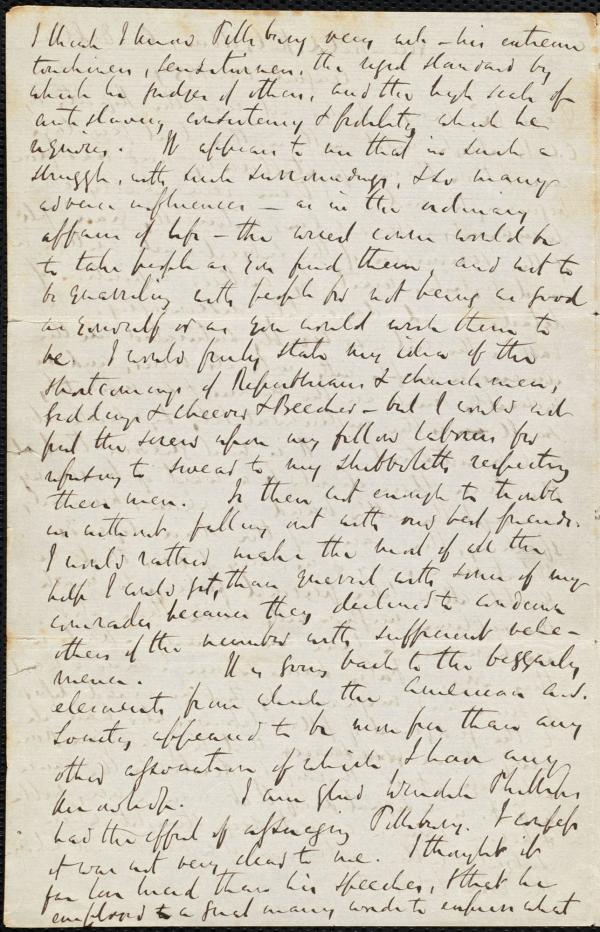 I think I know Pillsbury very well – his extreme
touchiness, sensitiveness, the rigid standard by
which he judges of others, and the high scale of
antislavery consistency & fidelity which he
requires. It appears to me that in such a
struggle, with such surroundings, & so many
adverse influences – as in the ordinary
affairs of life – the wisest course would be
to take people as you find them, and not to
be quarreling with people for not being as good
as yourself or as you would wish them to
be. I would freely state my idea of the
shortcomings of Republicans & churchmen,
Giddings & Cheever & Beecher – but I would not
put the screw upon my fellow laborers for
refusing to swear to my shibboleth respecting
these men. Is there not enough to trouble
us without falling out with our best friends.
I would rather make the most of all the
help I could get, than quarrel with some of my
comrades because they declined to condemn
others of the number with sufficient vehe-
mence. It is going back to the beggarly
elements from which the American A.S.
Society appeared to be more free than any
other association of which I have any
knowledge. I am glad Wendell Phillips
had the effect of assuaging Pillsbury. I confess
it was not very clear to me. I thought it
far less lucid than his speeches, & that he
employed a great many words to express what